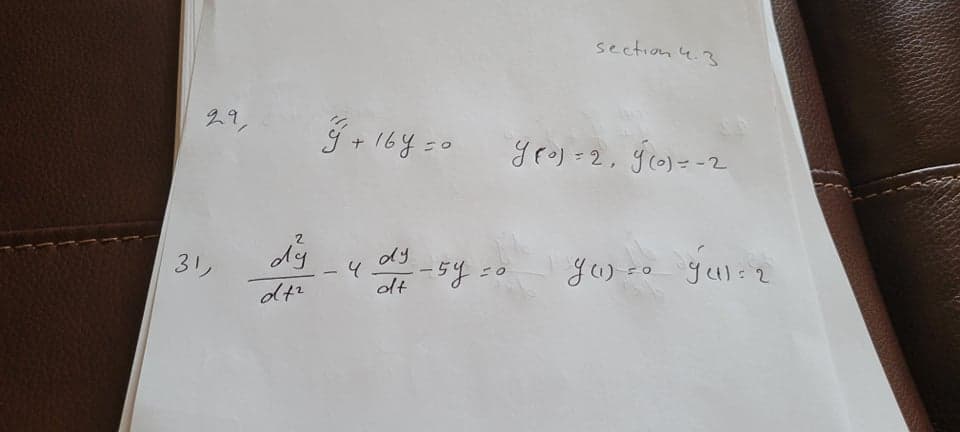 section 4.3
29, y'' + 16y = 0 y(0) = 2, y'(0) = -2
31, d²y/dt² - 4 dy/dt - 5y = 0 y(1) = 0 y'(1) = 2